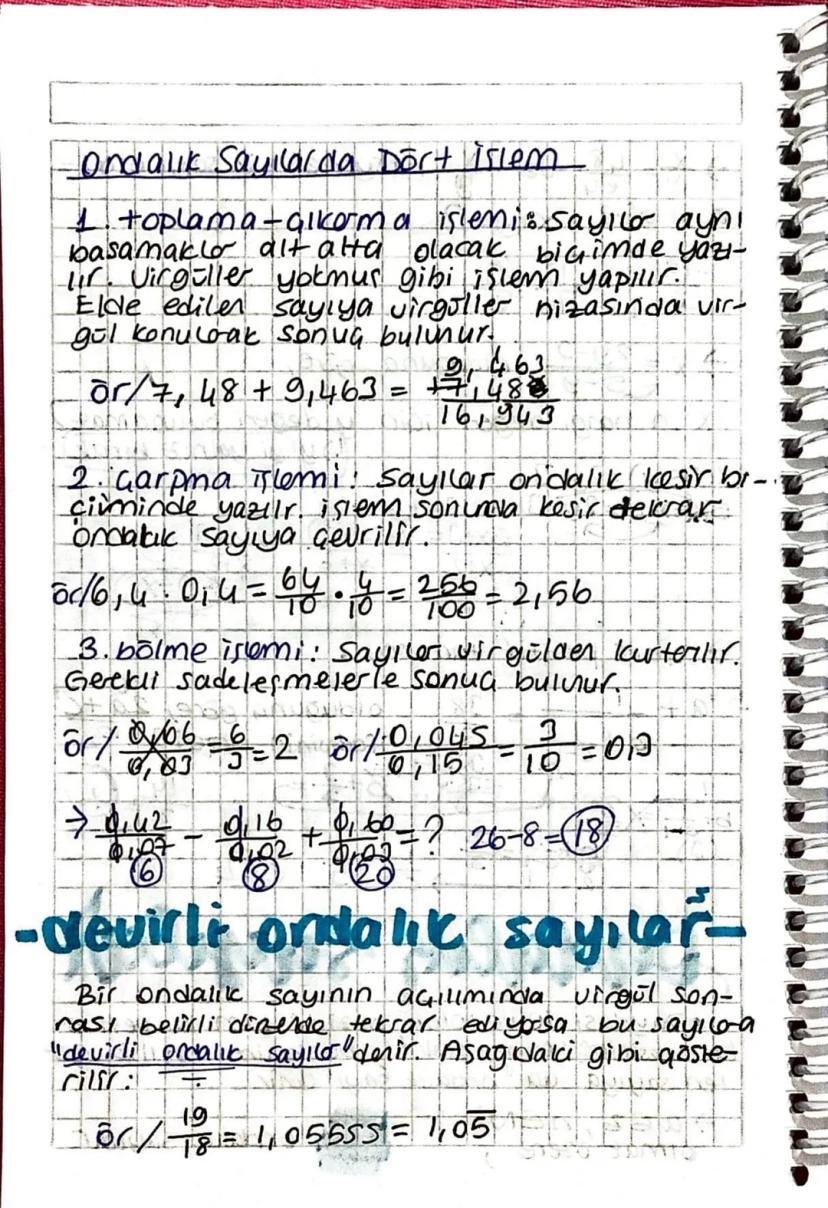 Ondalık Sayılarda Dört İşlem
1. toplama-çıkarma işlemi: sayılar aynı
basamaklar alt alta olacak biçimde yazı-
lır. Virgüller yokmuş gibi işlem yapılır.
Elde edilen sayıya virgüller hizasında vir-
gül konularak sonuç bulunur.
ör/7,48 + 9,463 = 9,463
+7,48
16,943
2. Çarpma işlemi: Sayılar ondalık kesir bi-
çiminde yazılır. işlem sonunda kesir tekrar
ondalık sayıya çevrilir.
ör/6,4 · 0,4 = 64/10 · 4/10 = 256/100 = 2,56
3. bölme işlemi: Sayılar virgülden kurtarılır.
Gerekli sadeleşmelerle sonuç bulunur.
ör/ 0,06/0,03 = 6/3 = 2 ör/ 0,045/0,15 = 3/10 = 0,3
→ 0,42/0,07 - 0,16/0,02 + 0,60/0,03 = ? 26-8=18
6 8 20
-devirli ondalık sayılar-
Bir ondalık sayının açılımında virgül son-
rası belirli düzende tekrar ediyorsa bu sayılara
"devirli ondalık sayılar" denir. Aşağıdaki gibi göste-
rilir:
ör/ 19/18 = 1,05555 = 1,05̅